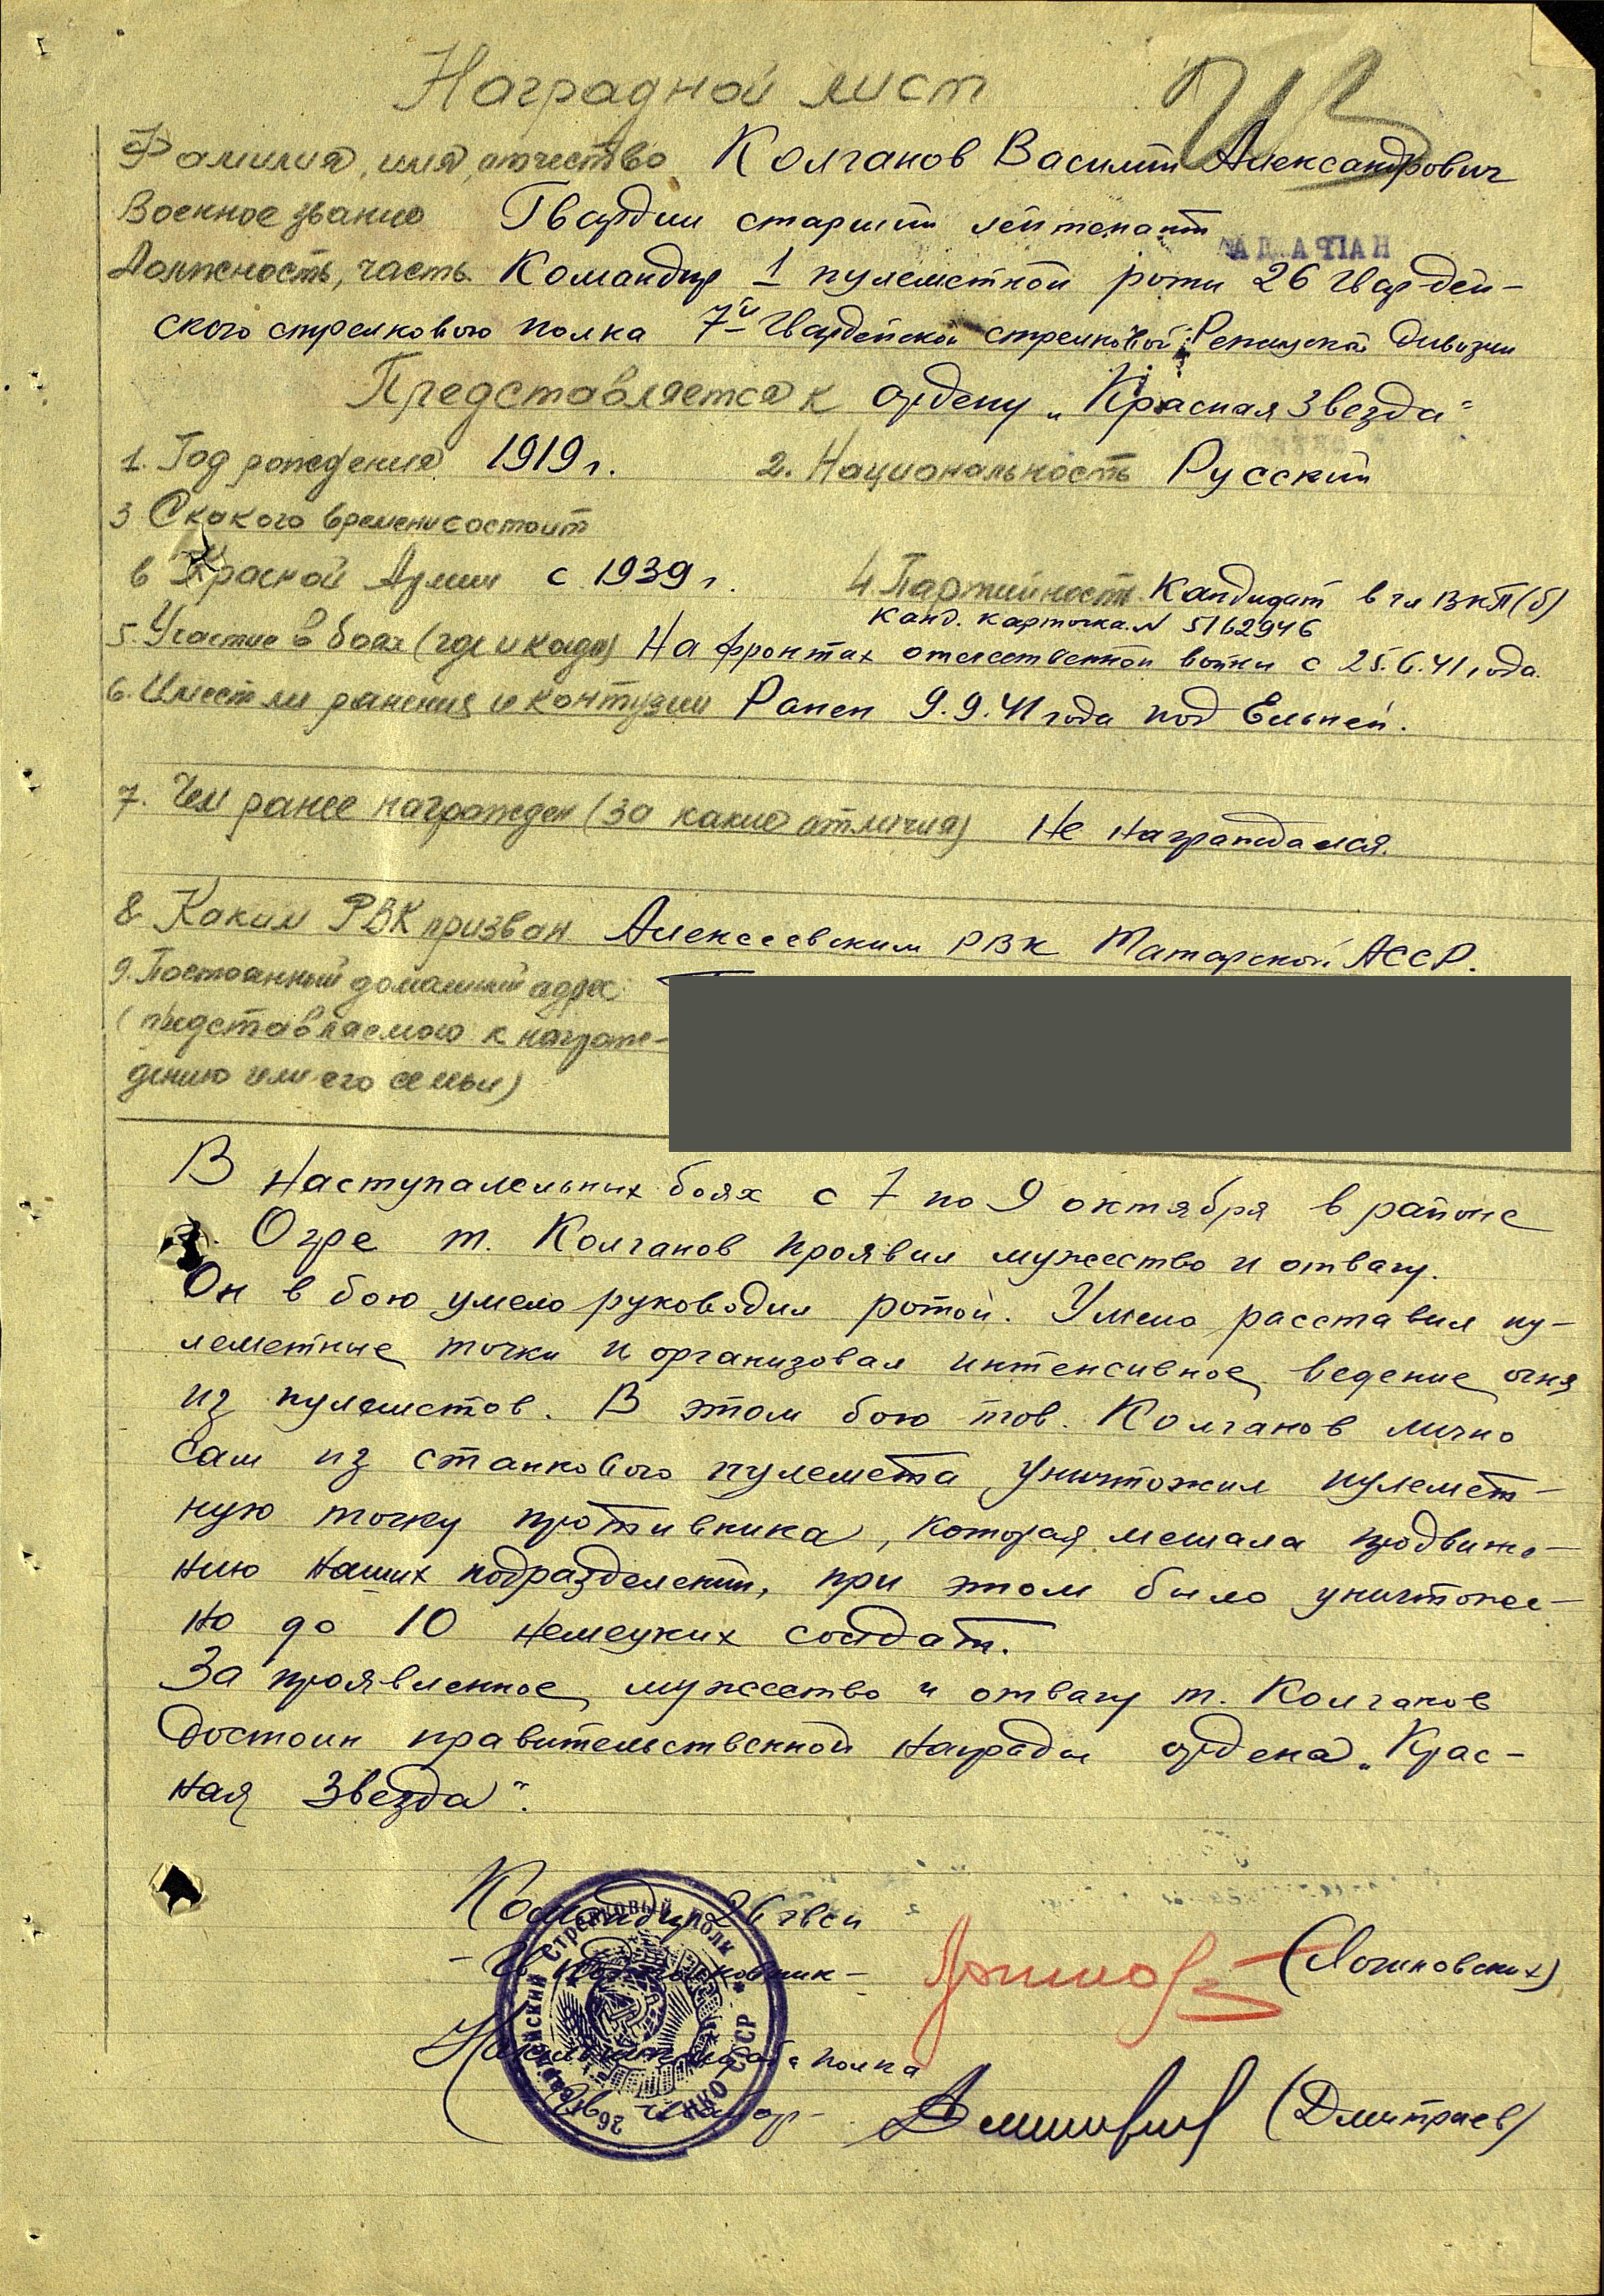 Наградной лист
Фамилия, имя, отчество Колганов Василий Александрович
Военное звание Гвардии старший лейтенант
НАГРАДА
Должность, часть Командир 1 пулеметной роты 26 Гвардей-
ского стрелкового полка 7й Гвардейской стрелковой Режицкой дивизии
Представляется к ордену „Красная Звезда"
1. Год рождения 1919 г. 2. Национальность Русский
3 С какого времени состоит
в Красной Армии с 1939 г. 4. Партийность Кандидат в чл ВКП(б)
канд. карточка N 5162946
5. Участие в боях (где и когда) На фронтах отечественной войны с 25.6.41 года.
6. Имеет ли ранения и контузии Ранен 9.9.41 года под Ельней.
7. Чем ранее награжден (за какие отличия) Не награждался.
8. Каким РВК призван Алексеевским РВК Татарской АССР.
9. Постоянный домашний адрес
(представляемого к награж-
дению или его семьи)
В наступательных боях с 7 по 9 октября в районе
Огре т. Колганов проявил мужество и отвагу.
Он в бою умело руководил ротой. Умело расставил пу-
леметные точки и организовал интенсивное ведение огня
из пулеметов. В этом бою тов. Колганов лично
сам из станкового пулемета уничтожил пулемет-
ную точку противника, которая мешала продвиже-
нию наших подразделений, при этом было уничтоже-
но до 10 немецких солдат.
За проявленное мужество и отвагу т. Колганов
достоин правительственной награды ордена „Крас-
ная Звезда".
Командир 26 гвсп
- Гв. подполковник - (Логиновских)
Начальник штаба полка
Гв. майор - (Дмитриев)
26 Гвардейский Стрелковый полк * НКО СССР